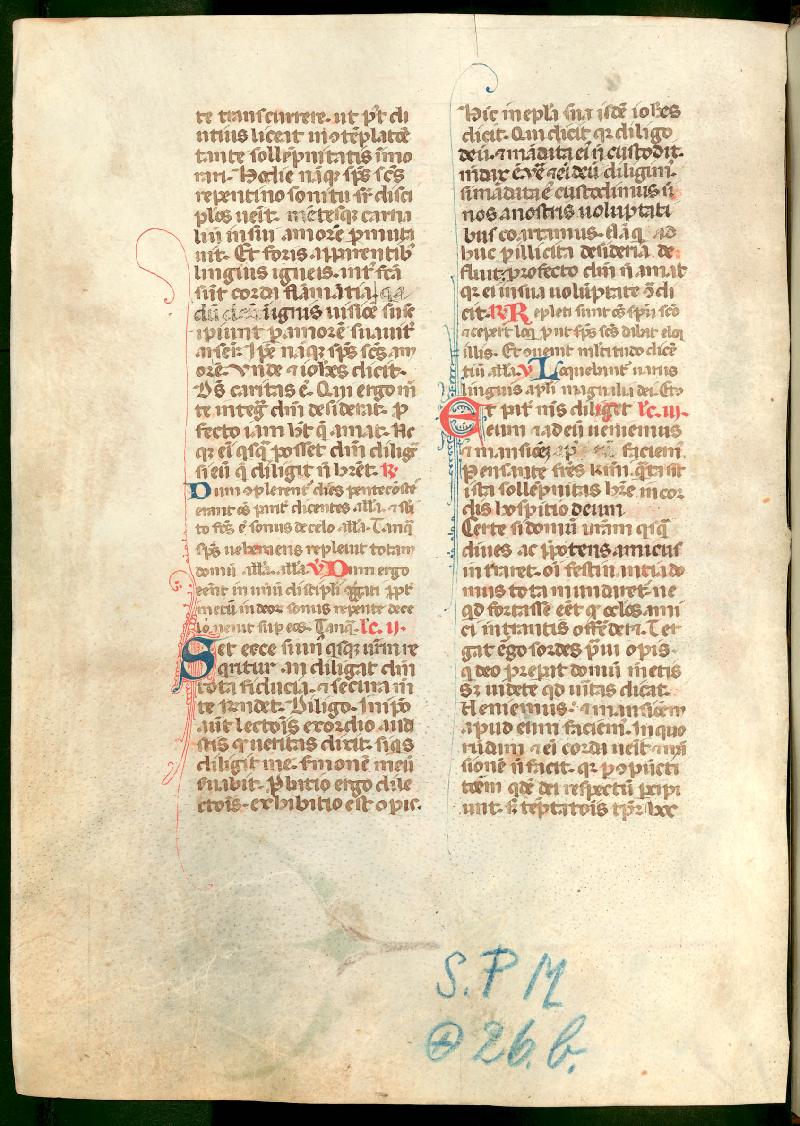 te transcurrere. ut pͬt cli
ntius liceat in ɔtēplatōe
tante sollēpnitatis īmo
rari. Hodie nāqꝫ sp̄s sc̄s
repentino sonitu sr̄ disci
plos uēit. mētesqꝫ carna
liū in sui amorē ꝑmuta
uit. Et foris apparentibꝰ
linguis igneis. intꝰ fc̄a
sūt corda flāmātia.
dū deū ī ignis uisiōe susc
ipiunt ꝑ amorē suauitͬ
arserūt. Ip̄e nāqꝫ sp̄s sc̄s am
or ē. Vnde ⁊ ioh̄es dicit.
Dꝰs caritas ē. Qui ergo m̄
te integͣ dm̄ desiderat. ꝓ
fecto iam h̄t q̄ amat. Ne
qꝫ eī qͥsqꝫ posset dm̄ diligͤ
si eū q̄ diligit n̄ h̄ret. ℟.
Dum ɔplerent᷑ dies pentecoste
erant oēs pariṫ dicentes alla. ⁊ sbi
to fcūs ē sonus de celo alla. Tanqͣ
sp̄s uehemens repleuit totam
domū alla. alla. ℣ Dum ergo
eēnt in unū discipli ɔgͤgati ꝓpt̄
metū iudeor̄ sonus repente de ce
lo uenit sup eos. Tanqͣ. lc̄. ij.
Set ecce si unꝰqͥsqꝫ ur̄m re
qͥritur an diligat dm̄
tota fiducia. ⁊ secura m̄
te rn̄det. Diligo. In ip̄o
aut lectōis exordio aud
istis qͥ ueritas dixit. Siqͥs
diligit me. sͬmonē meū
suabit. Ꝓbatio ergo dile
ctōis. exhibitio est opͥs.
Hīc in epl̄a sua idē ioh̄es
dicit. Qui dicit qꝫ diligo
deū. ⁊ mādata eī n̄ custodit.
mdax ē. Ve᷑ ⁊ eī deū diligimꝰ.
si mādata eꝰ custodimus si
nos a nostris uoluptati
bus coartamus. Nā qͥ ad
huc ꝑ illicita desideria de
fluit. ꝓfecto dm̄ n̄ amat
qꝫ eī in sua uolūtate ɔ̄dī
cit. ℟ Repleti sunt oēs sp̄u sc̄o
⁊ ceperūt loqͥ. ꝓut sp̄s sc̄s dabat eloqͥ
illis. Et ɔuenit mltitudo dicē
tiū alla. ℣ Loquebant᷑ uariis
linguis apl̄i magnalia dei. Et ɔ
Et patͬ mꝰs diliget lc̄. iij.
eum ⁊ ad eū ueniemus
⁊ mansioē apud eū faciemꝰ.
Pensate fr̄es k̄mi. qͣnta sit
ista sollēpnitas h̄re in cor
dis hospitio deum.
Certe si domū ur̄am qͥsqͣ
diues ac p̄potens amicus
intraret. oī festinantia do
mus tota mundaret᷑. ne
qͥd fortasse eēt qͦ oc̄los ami
ci intrantis offēdͤt. Ter
gat ēgo sordes praui opͥs.
qͥ deo preparat domū mētis
Sꝫ uidete qͥd uītas dicat.
Ueniemus. ⁊ mansionem
apud eum faciemꝰ. In quo
rūdam ⁊ eī corda uenit ⁊ mā
sionē n̄ facit. qꝫ ꝑ ɔpūcti
onem qͥdē dei respectū ꝑcipi
unt. sꝫ tēptatōis tp̄r̄ hoc
S.P.M
26.b.